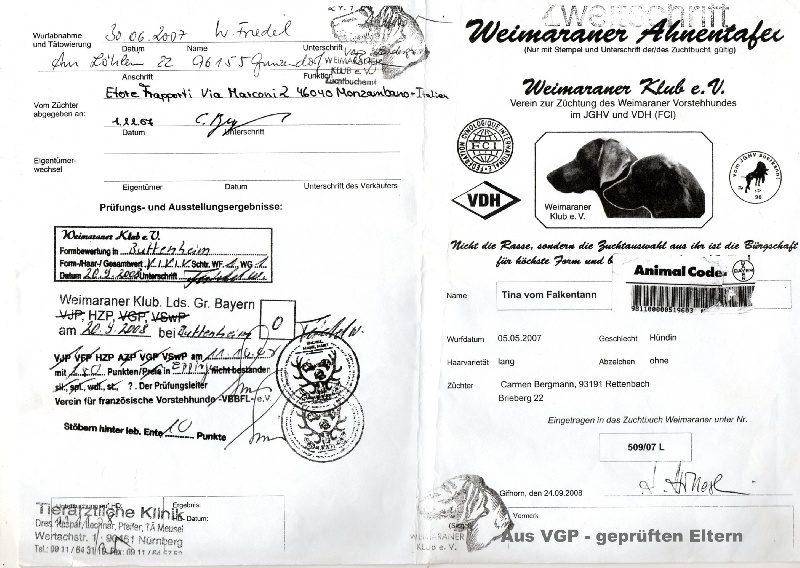 Wurfabnahme und Tätowierung
30.06.2007 W. Friedel
Datum Name Unterschrift
Am Löhlein 22 96155
Anschrift Funktion
WEIMARANER KLUB e.V.
Zuchtbuchamt
Vom Züchter abgegeben an:
Etore Frapporti Via Marconi 2 46040 Monzambano-Italien
Datum Unterschrift
Eigentümer-wechsel
Eigentümer Datum Unterschrift des Verkäufers
Prüfungs- und Ausstellungsergebnisse:
Weimaraner Klub e.V.
Formbewertung in Buttenheim
Form-/Haar-/ Gesamtwert V. I. V. I. V. Schtr. WF. 2 WG 1
Datum 20.9.2008 Unterschrift
Weimaraner Klub. Lds. Gr. Bayern
VJP, HZP, VGP, VSwP
am 20.9.2008 bei Buttenheim
0
VJP VFP HZP AZP VGP VSwP am
mit Punkten/Preis in nicht bestanden
sil., spl., wdl., st., ? . Der Prüfungsleiter
Verein für französische Vorstehhunde -VBBFL- e.V.
Stöbern hinter leb. Ente 10 Punkte
Ergebnis:
HD-Datum:
Tierärztliche Klinik
Dres. Kaspar, Lechner, Pfeifer, TÄ Meusel
Wertachstr. 1 · 90451 Nürnberg
Zweitschrift
Weimaraner Ahnentafel
(Nur mit Stempel und Unterschrift der/des Zuchtbucht. gültig)
Weimaraner Klub e.V.
Verein zur Züchtung des Weimaraner Vorstehhundes
im JGHV und VDH (FCI)
FEDERATION CYNOLOGIQUE INTERNATIONALE
FCI
VDH
Weimaraner Klub e.V.
vom JGHV anerkannt
Nicht die Rasse, sondern die Zuchtauswahl aus ihr ist die Bürgschaft
für höchste Form und
Animal Code
BAYER
981100000519603
Name Tina vom Falkentann
Wurfdatum 05.05.2007 Geschlecht Hündin
Haarvarietät lang Abzeichen ohne
Züchter Carmen Bergmann, 93191 Rettenbach
Brieberg 22
Eingetragen in das Zuchtbuch Weimaraner unter Nr.
509/07 L
Gifhorn, den 24.09.2008
Vermerk
WEIMARANER KLUB e.V.
Aus VGP - geprüften Eltern